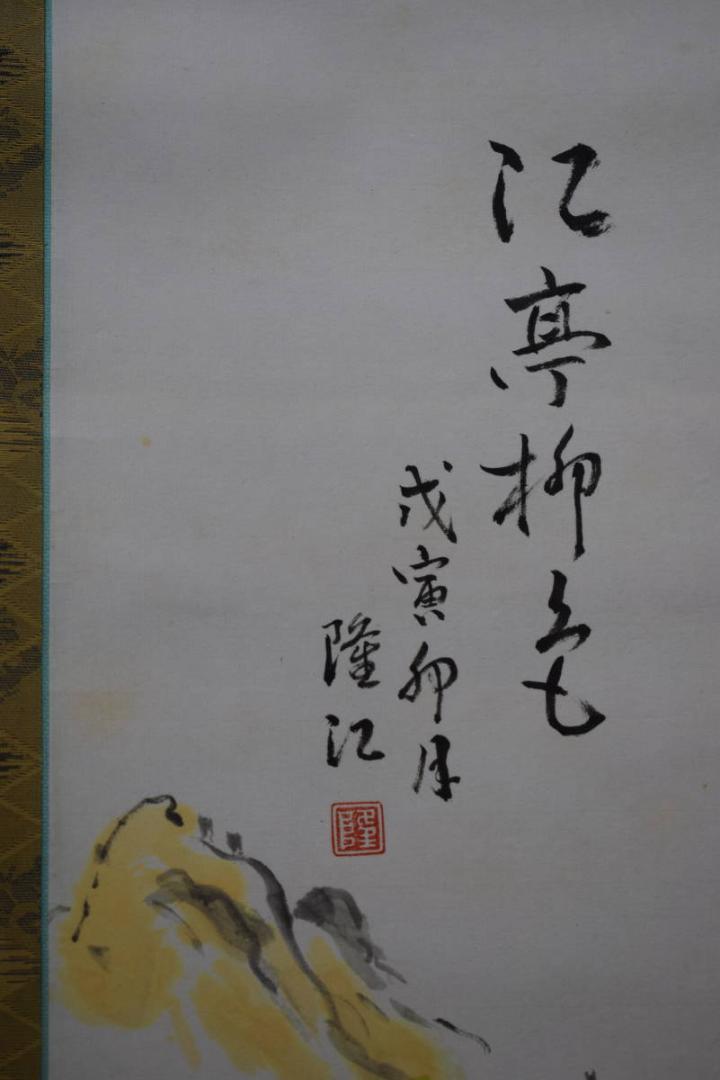 江亭柳色
戊寅卯月
隆江
隆